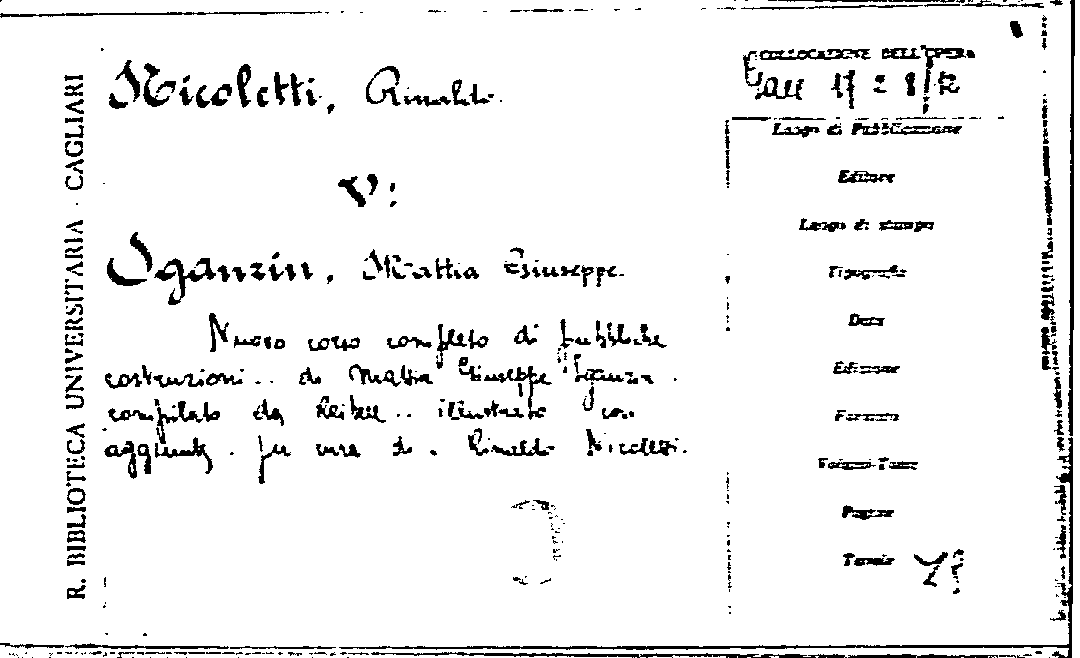 R. BIBLIOTECA UNIVERSITARIA - CAGLIARI
Nicoletti, Rinaldo.
V:
Sganzin, Mattia Giuseppe.
Nuovo corso completo di pubbliche
costruzioni.. di Mattia Giuseppe Sganzin.
compilato da Reibell.. illustrato con
aggiunte. per cura di. Rinaldo Nicoletti.
COLLOCAZIONE DELL'OPERA
Luogo di Pubblicazione
Editore
Luogo di stampa
Tipografia
Data
Edizione
Formato
Volumi-Tomi
Pagine
Tavole